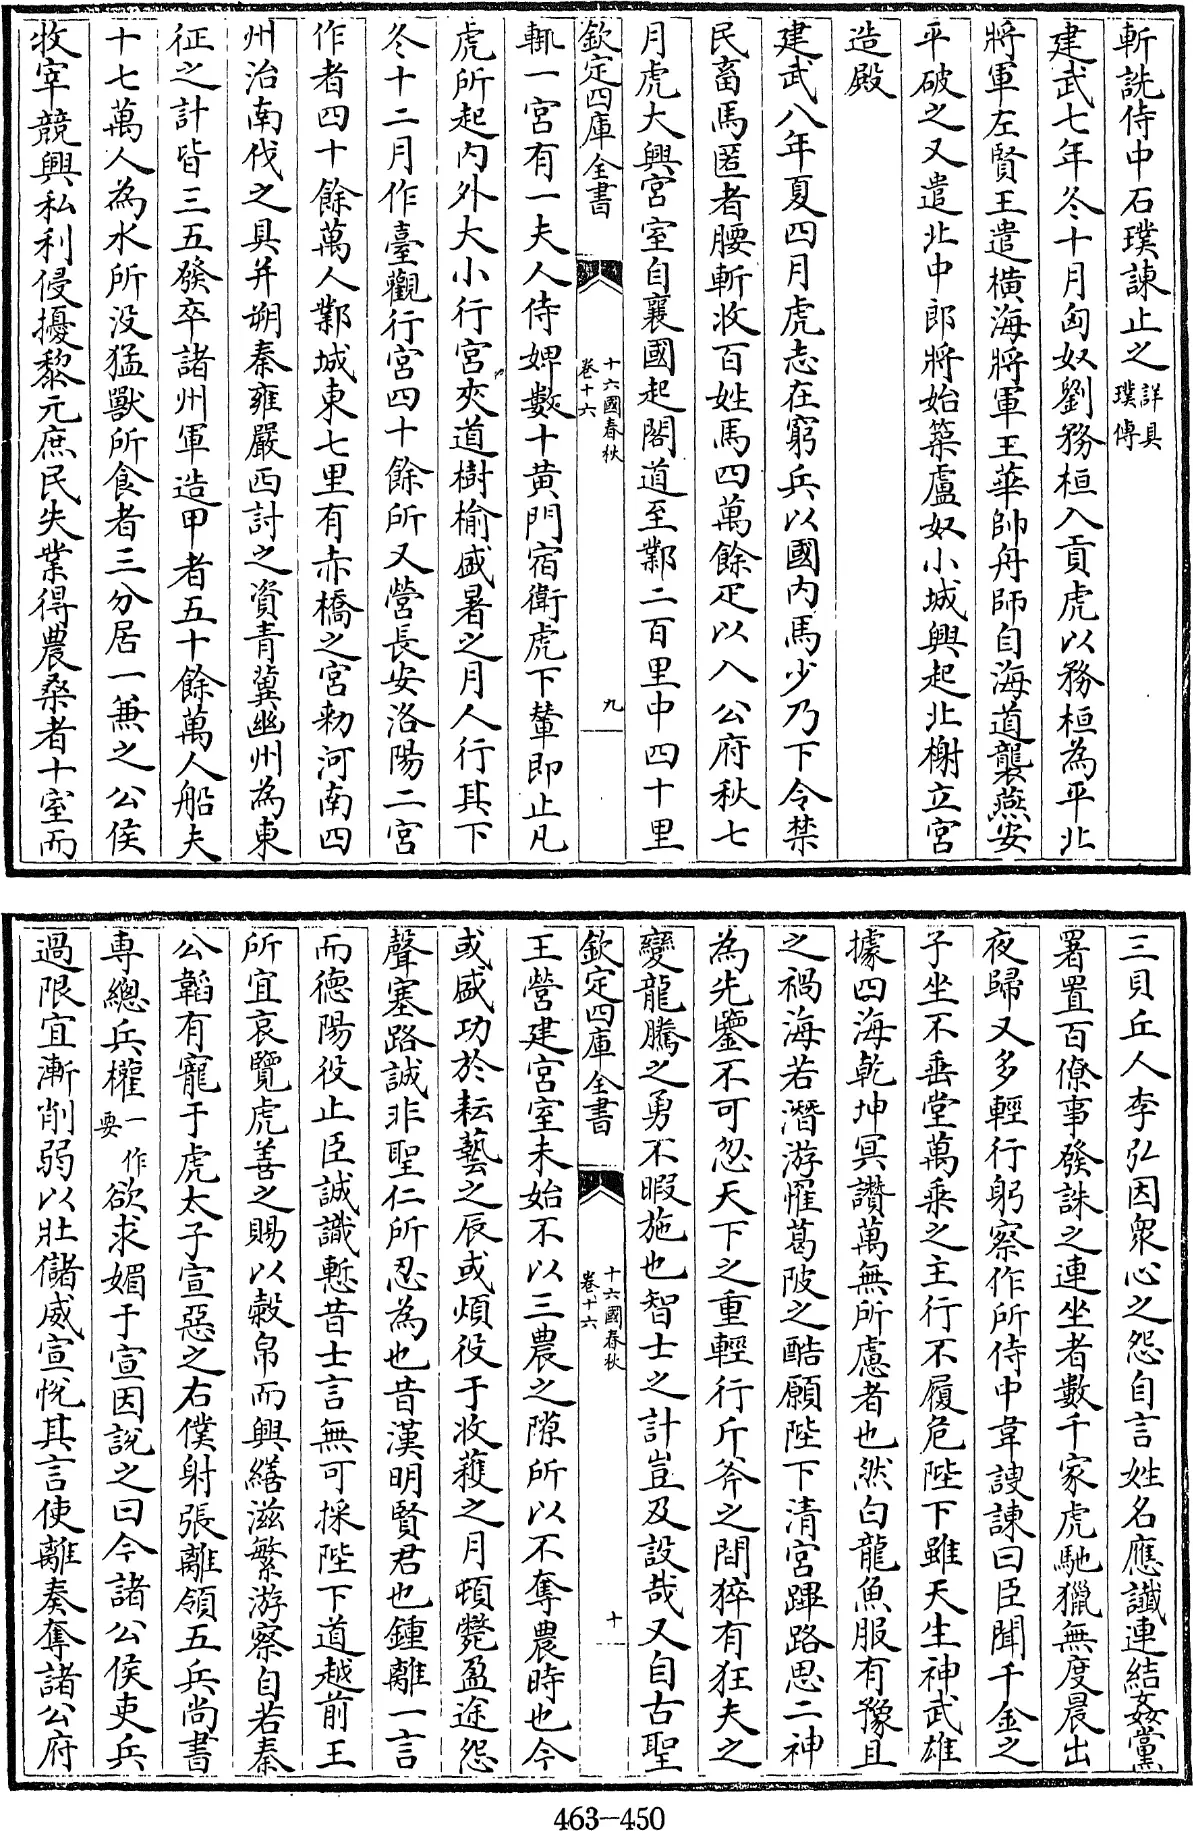 斬詵侍中石璞諫止之詳具璞傳
建武七年冬十月匈奴劉務桓入貢虎以務桓為平北
將軍左賢王遣橫海將軍王華帥舟師自海道襲燕安
平破之又遣北中郎將始築盧奴小城興起北榭立宮
造殿
建武八年夏四月虎志在窮兵以國內馬少乃下令禁
民畜馬匿者腰斬收百姓馬四萬餘疋以入公府秋七
月虎大興宮室自襄國起閣道至鄴二百里中四十里
欽定四庫全書
十六國春秋
卷十六
九
輒一宮有一夫人侍婢數十黃門宿衛虎下輦即止凡
虎所起內外大小行宮夾道樹榆盛暑之月人行其下
冬十二月作臺觀行宮四十餘所又營長安洛陽二宮
作者四十餘萬人鄴城東七里有赤橋之宮勑河南四
州治南伐之具并朔秦雍嚴西討之資青冀幽州為東
征之計皆三五發卒諸州軍造甲者五十餘萬人船夫
十七萬人為水所沒猛獸所食者三分居一兼之公侯
牧宰競興私利侵擾黎元庶民失業得農桑者十室而
三貝丘人李弘因衆心之怨自言姓名應讖連結姦黨
署置百僚事發誅之連坐者數千家虎馳獵無度晨出
夜歸又多輕行躬察作所侍中韋謏諫曰臣聞千金之
子坐不垂堂萬乘之主行不履危陛下雖天生神武雄
據四海乾坤冥讚萬無所慮者也然白龍魚服有豫且
之禍海若潛游罹葛陂之酷願陛下清宮蹕路思二神
為先鑒不可忽天下之重輕行斤斧之間猝有狂夫之
變龍騰之勇不暇施也智士之計豈及設哉又自古聖
欽定四庫全書
十六國春秋
卷十六
十
王營建宮室未始不以三農之隙所以不奪農時也今
或盛功於耘藝之辰或煩役于收穫之月頓斃盈途怨
聲塞路誠非聖仁所忍為也昔漢明賢君也鍾離一言
而德陽役止臣誠識慙昔士言無可採陛下道越前王
所宜哀覽虎善之賜以穀帛而興繕滋繁游察自若秦
公韜有寵于虎太子宣惡之右僕射張離領五兵尚書
專總兵權一作要欲求媚于宣因說之曰今諸公侯吏兵
過限宜漸削弱以壯儲威宣悅其言使離奏奪諸公府
463-450